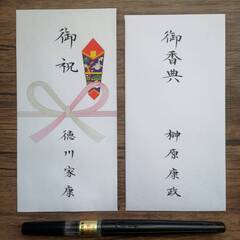 御祝
徳川家康
御香典
榊原康政